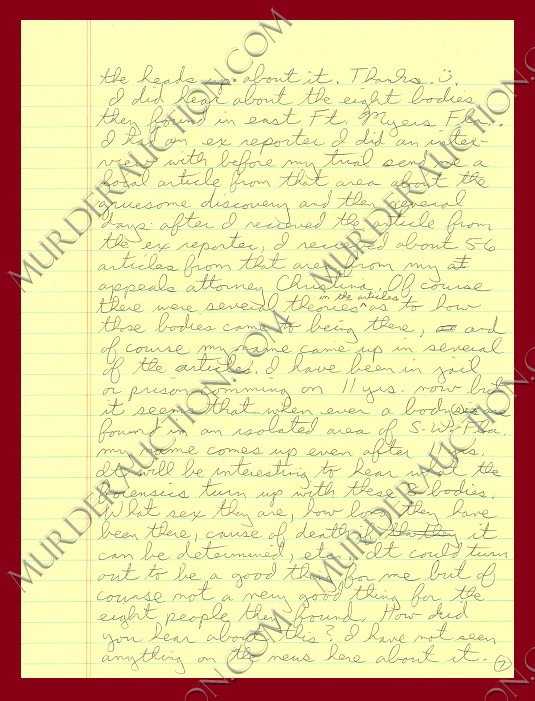 the heads up about it. Thanks. ü.
I did hear about the eight bodies
they found in east Ft. Myers Fla.
I had an ex reporter I did an inter-
view with before my trial send me a
local article from that area about the
gruesome discovery and then several
days after I received the article from
the ex reporter, I received about 56
articles from that area from my at
appeals attorney Christina. Of course
there were several theories in the articles as to how
those bodies came to being there, and
of course my name came up in several
of the articles. I have been in jail
or prison comming on 11 yrs. now but
it seems that when ever a body(s) is
found in an isolated area of S.W. Fla.
my name comes up even after yrs.
It will be interesting to hear what the
forensics turn up with these 8 bodies.
What sex they are, how long they have
been there, cause of death, it
can be determined, etc... It could turn
out to be a good thing for me but of
course not a very good thing for the
eight people they found. How did
you hear about this? I have not seen
anything on the news here about it. 7
MURDERAUCTION.COM
MURDERAUCTION.COM
MURDERAUCTION.COM
MURDERAUCTION.COM